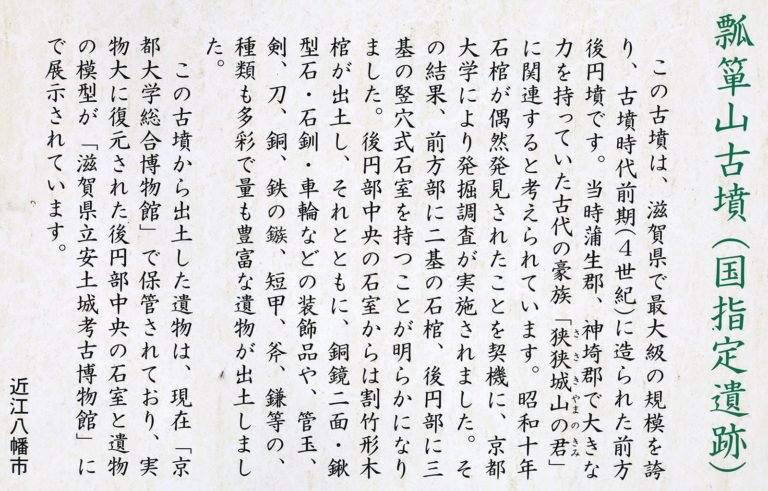 瓢箪山古墳(国指定遺跡)
この古墳は、滋賀県で最大級の規模を誇
り、古墳時代前期(4世紀)に造られた前方
後円墳です。当時蒲生郡、神埼郡で大きな
力を持っていた古代の豪族「狭狭城山の君」
ささきやまのきみ
に関連すると考えられています。昭和十年
石棺が偶然発見されたことを契機に、京都
大学により発掘調査が実施されました。そ
の結果、前方部に二基の石棺、後円部に三
基の竪穴式石室を持つことが明らかになり
ました。後円部中央の石室からは割竹形木
棺が出土し、それとともに、銅鏡二面・鍬
型石・石釧・車輪などの装飾品や、管玉、
剣、刀、銅、鉄の鏃、短甲、斧、鎌等の、
種類も多彩で量も豊富な遺物が出土しまし
た。
この古墳から出土した遺物は、現在「京
都大学総合博物館」で保管されており、実
物大に復元された後円部中央の石室と遺物
の模型が「滋賀県立安土城考古博物館」に
で展示されています。
近江八幡市